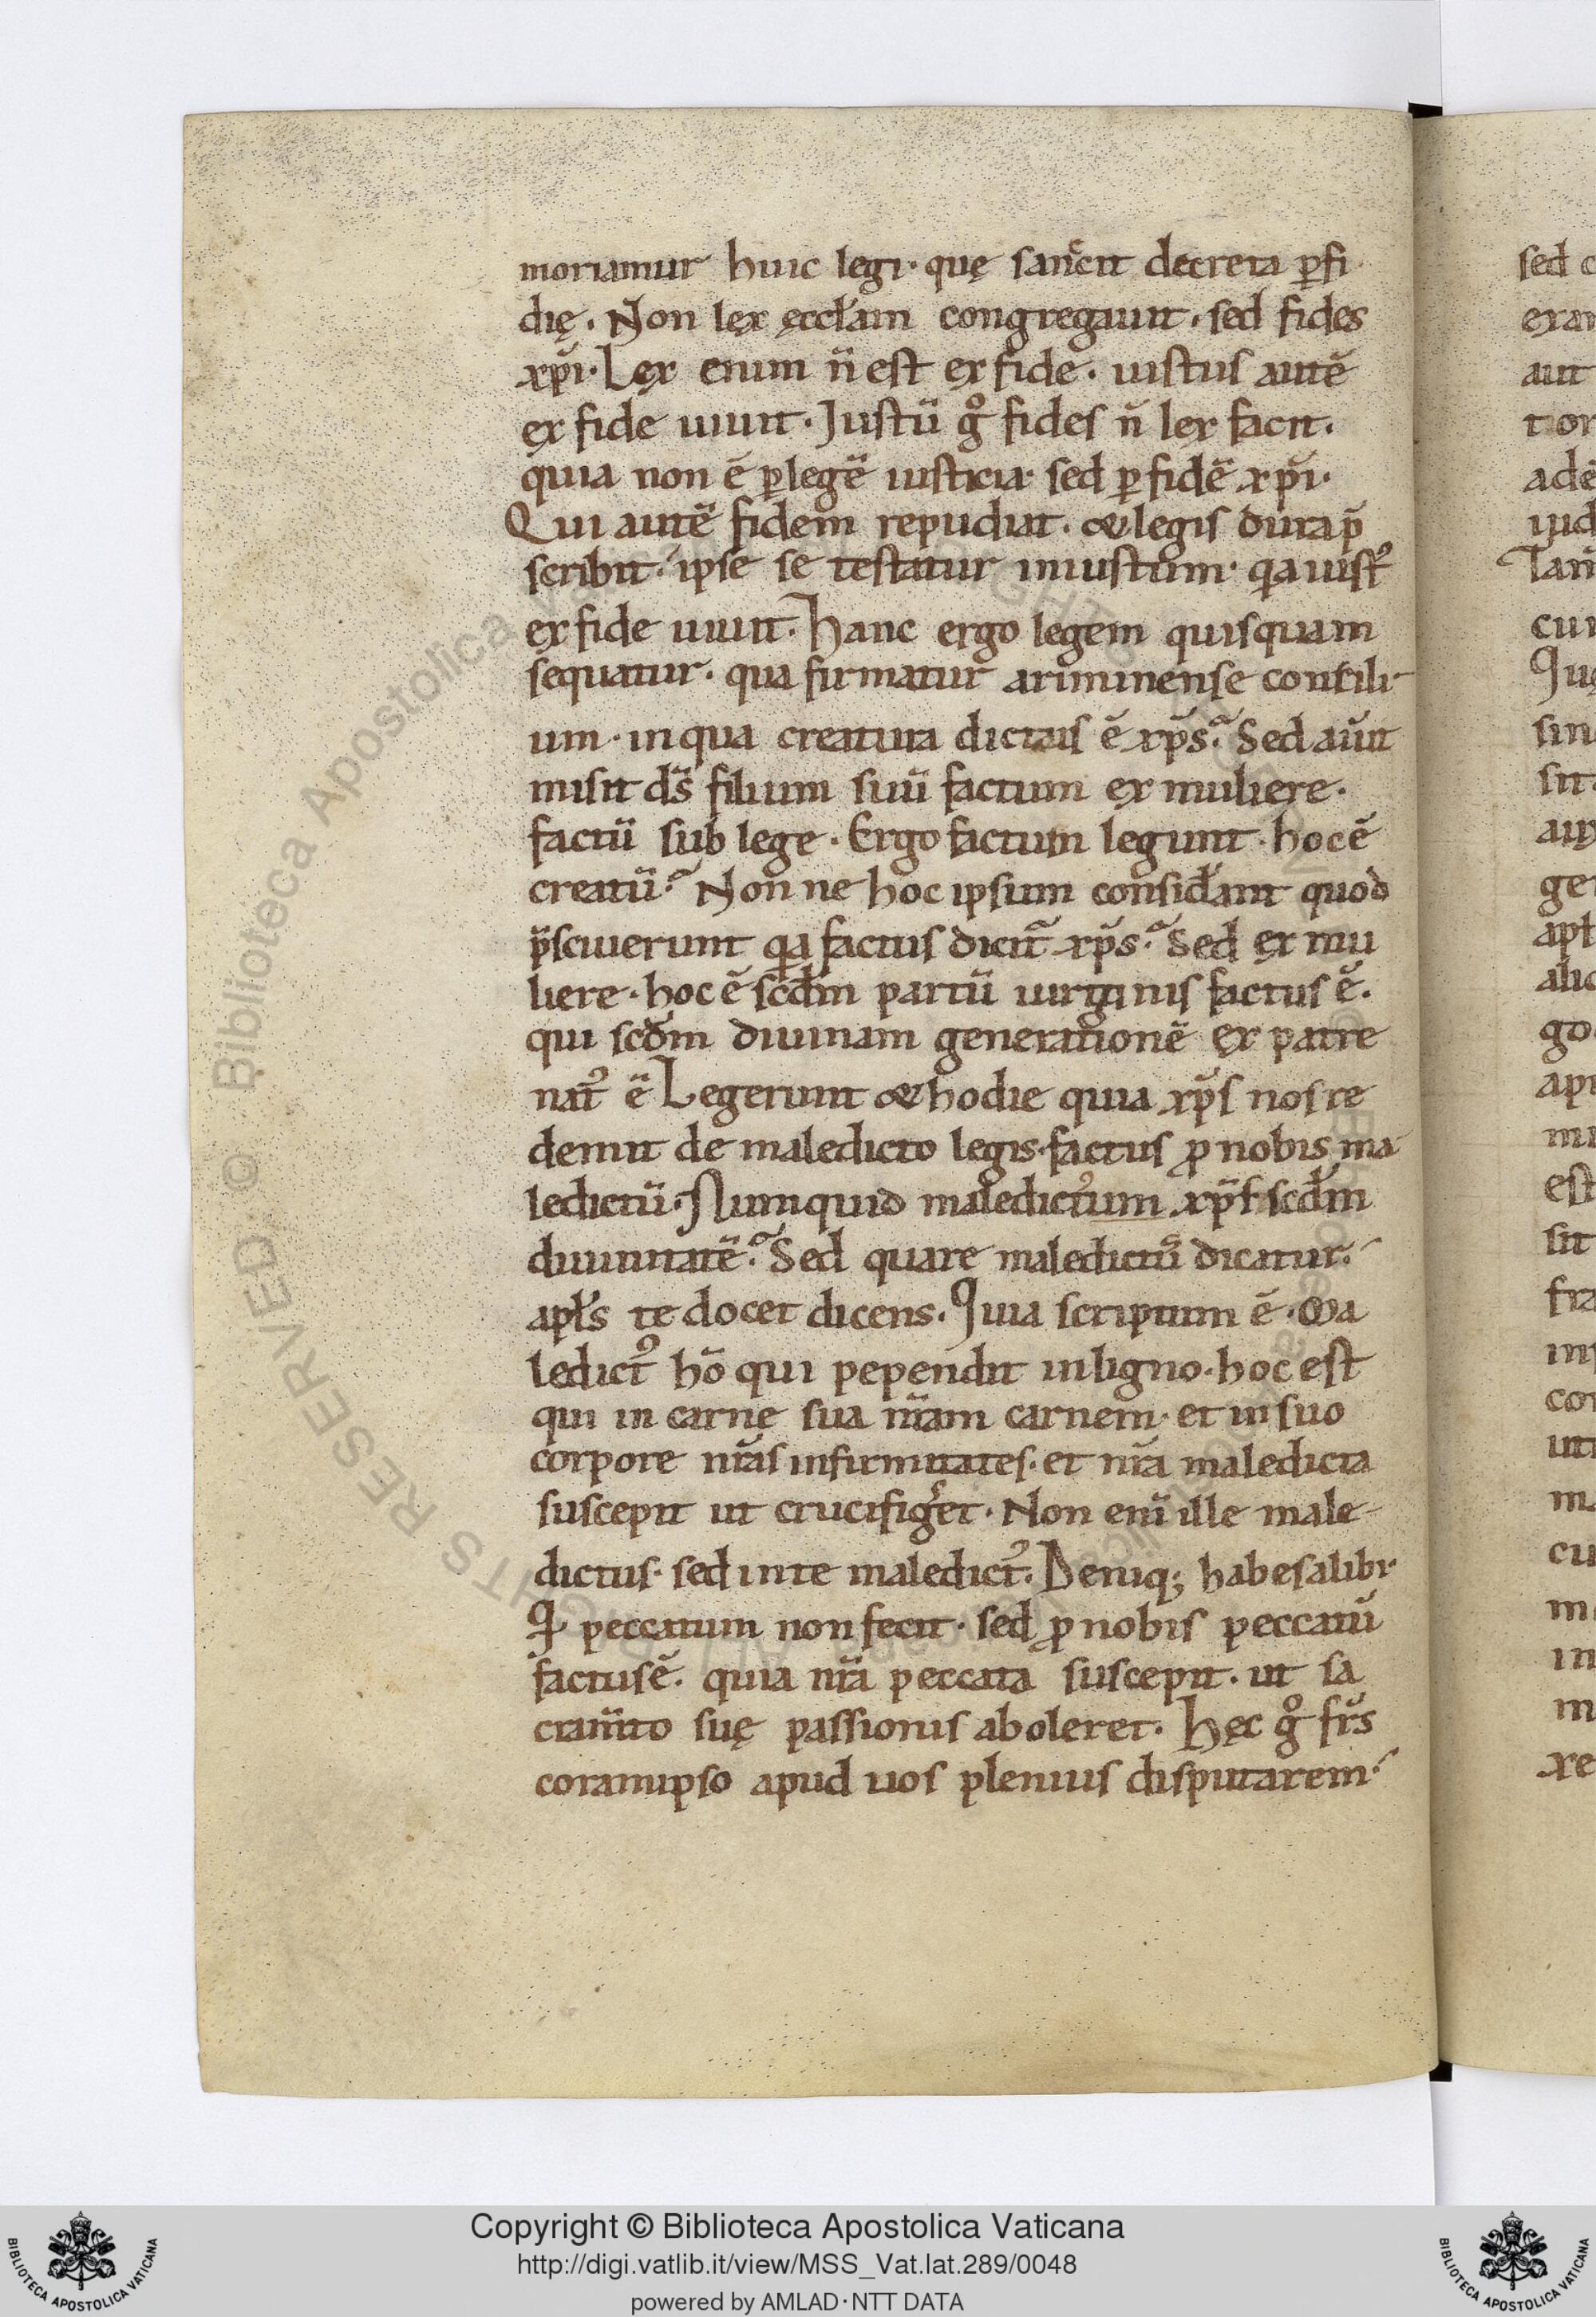 moriamur huic legi· quę sancit decreta ꝑfi
dię. Non lex ęccłam congregauit. sed fides
xp̄i. Lex enim n̄ est ex fide. iustus autē
ex fide uiuit. Justū gͦ fides n̄ lex facit.
quia non ē ꝑ legē iusticia· sed ꝑ fidē xp̄i·
Qui autē fidem repudiat. & legis dura p̄
scribit. ipse se testatur iniustum· qa iustꝰ
ex fide uiuit. Hanc ergo legem quisquam
sequatur. qua firmatur ariminense consili
um· in qua creatura dictus ē xp̄s. Sed aiūt
misit ds̄ filium suū factum ex muliere.
factū sub lege. Ergo factum legunt· hoc ē
creatū. Non ne hoc ipsum considerant quod
p̄sciuerunt qa factus dicit̄ xp̄s. Sed ex mu
liere· hoc ē scdm̄ partū uirginis factus ē.
qui scdm̄ diuinam generationē ex patre
natꝰ ē Legerunt & hodie quia xp̄s nos re
demit de maledicto legis· factus ꝓ nobis ma
ledictū. Numquid maledictum xp̄s scdm̄
diuinitatē. Sed quare maledictū dicatur.
apłs te docet dicens. Quia scriptum ē. Ma
ledictꝰ hō qui pependit in ligno· hoc est
qui in carne sua nr̄am carnem· et in suo
corpore nr̄as infirmitates· et nr̄a maledicta
suscepit ut crucifigeret. Non enī ille male
dictus· sed in te maledictꝰ. Deniq; habes alibi·
Q peccatum non fecit· sed ꝓ nobis peccatū
factus ē. quia nr̄a peccata suscepit. ut sa
cram̄to suę passionis aboleret. Hęc gͦ frs̄
coram ipso apud uos plenius disputarem·
sed c
aut
sit.
est
sit
© Biblioteca Apostolica Vaticana
ALL RIGHTS RESERVED
BIBLIOTECA APOSTOLICA VATICANA
Copyright © Biblioteca Apostolica Vaticana
http://digi.vatlib.it/view/MSS_Vat.lat.289/0048
powered by AMLAD·NTT DATA
BIBLIOTECA APOSTOLICA VATICANA